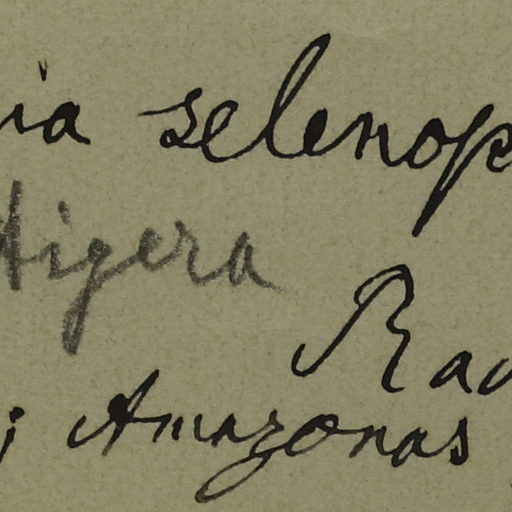 ia selenop
tigera
Rad
; Amazonas